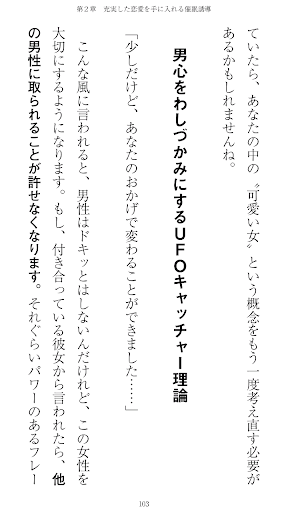 第２章　充実した恋愛を手に入れる催眠誘導
ていたら、あなたの中の〝可愛い女〟という概念をもう一度考え直す必要が
あるかもしれませんね。
男心をわしづかみにするＵＦＯキャッチャー理論
「少しだけど、あなたのおかげで変わることができました……」
こんな風に言われると、男性はドキッとはしないんだけれど、この女性を
大切にするようになります。もし、付き合っている彼女から言われたら、他
の男性に取られることが許せなくなります。それぐらいパワーのあるフレー
103